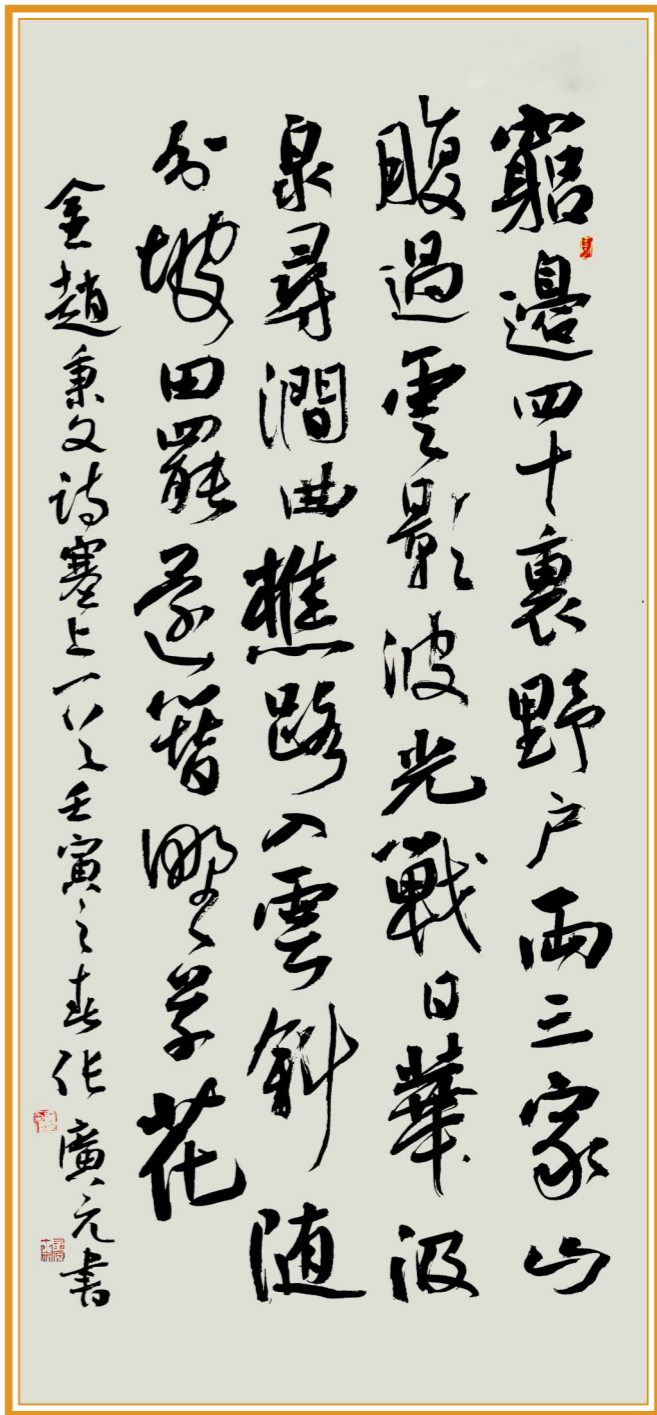 窮邊四十裏野户兩三家山
腹過雲影波光戰日華汲
泉尋澗曲樵路入雲斜随
分坡田罷還簪野草花
金趙秉文詩塞上一首壬寅之春張廣元書